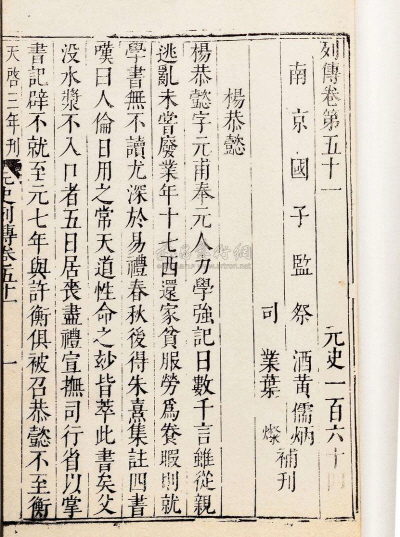 列傳卷第五十一
元史一百六十四
南京國子監祭酒黃儒炳補刊
司業葉燦
楊恭懿
楊恭懿字元甫奉元人力學強記日數千言雖從親
逃亂未嘗廢業年十七西還家貧服勞爲養暇則就
學書無不讀尤深於易禮春秋後得朱熹集註四書
嘆曰人倫日用之常天道性命之玅皆萃此書矣父
沒水漿不入口者五日居喪盡禮宣撫司行省以掌
書記辟不就至元七年與許衡俱被召恭懿不至衡
天啓三年刊
元史列傳卷五十一
一